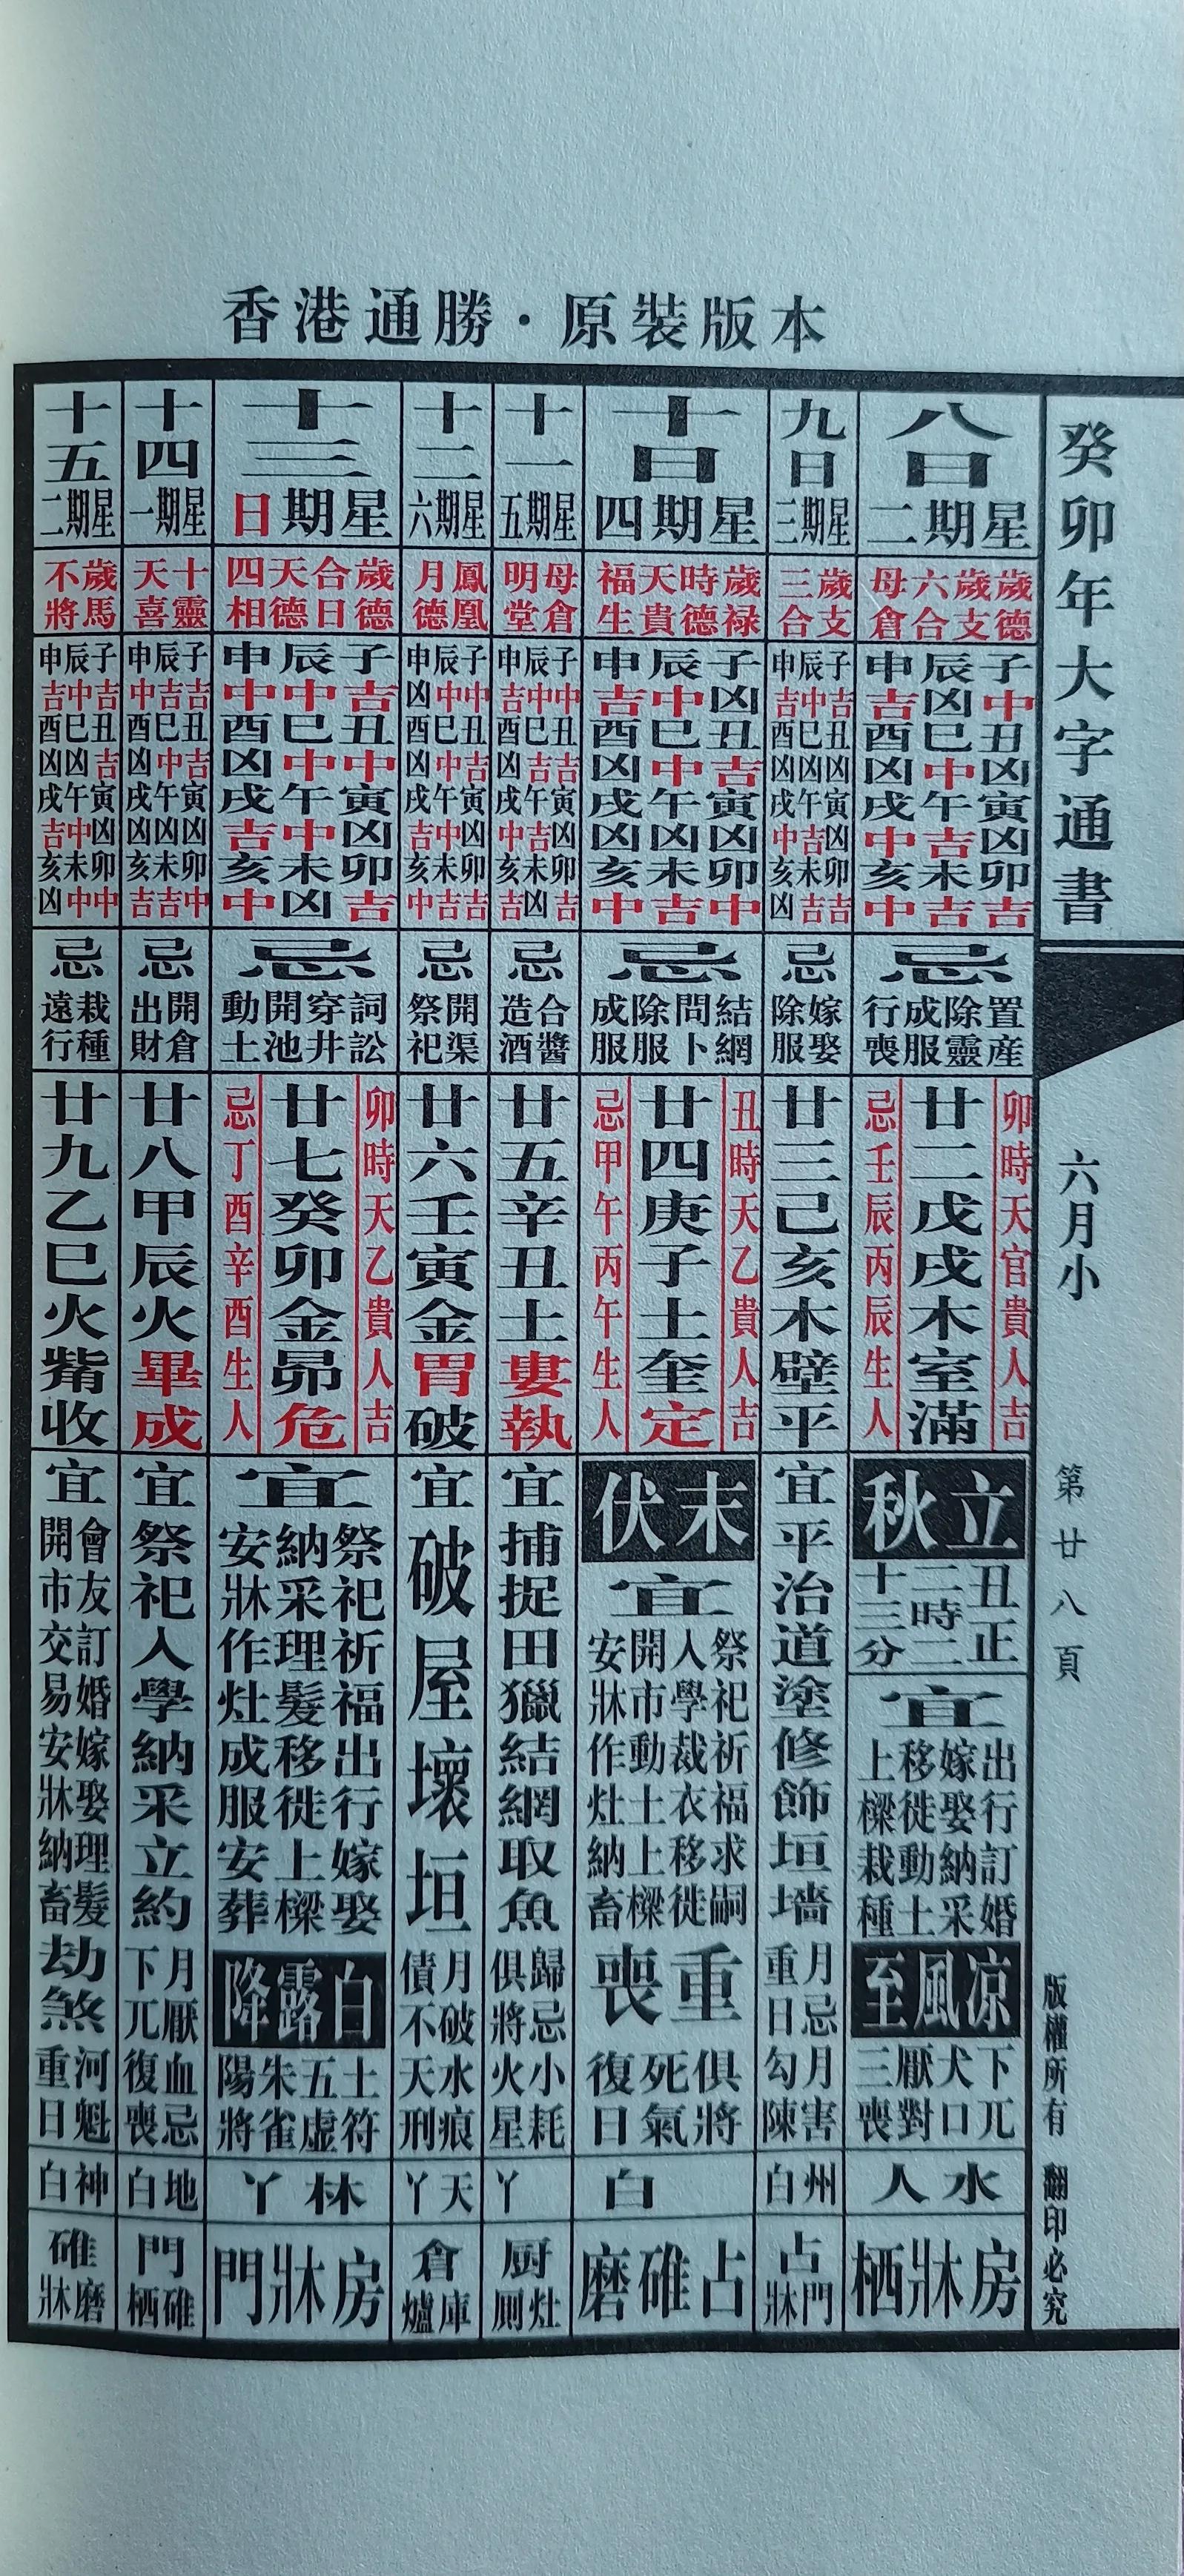 香港通勝·原裝版本
癸卯年大字通書
六月小
第廿八頁
版權所有 翻印必究
八日
星期二
歲德
歲支
六合
母倉
子中丑凶寅凶卯吉
辰凶巳中午吉未吉
申吉酉凶戌中亥中
忌
置產
除靈
成服
行喪
卯時天官貴人吉
廿二戊戌木室滿
忌壬辰丙辰生人
立秋
丑正
二時二
十三分
宜
出行訂婚
嫁娶納采
移徙動土
上樑栽種
凉風至
下兀
犬口
厭對
三喪
水人
房牀栖
九日
星期三
歲支
三合
子吉丑凶寅凶卯吉
辰中巳凶午吉未吉
申吉酉凶戌中亥凶
忌
嫁娶
除服
廿三己亥木壁平
宜平治道塗修飾垣墻
月忌月害
重日勾陳
州白
占門牀
十日
星期四
歲禄
時德
天貴
福生
子凶丑吉寅凶卯中
辰中巳中午凶未吉
申吉酉凶戌凶亥中
忌
結網
問卜
除服
成服
丑時天乙貴人吉
廿四庚子土奎定
忌甲午丙午生人
末伏
宜
祭祀祈福求嗣
入學裁衣移徙
開市動土上樑
安牀作灶納畜
重喪
俱將
死氣
復日
白
占碓磨
十一
星期五
母倉
明堂
子中丑吉寅凶卯吉
辰中巳吉午吉未凶
申吉酉凶戌中亥吉
忌
合醬
造酒
廿五辛丑土婁執
宜捕捉田獵結網取魚
歸忌小耗
俱將火星
丫
厨灶厠
十二
星期六
鳳凰
月德
子中丑吉寅凶卯吉
辰中巳中午中未吉
申凶酉凶戌吉亥中
忌
開渠
祭祀
廿六壬寅金胃破
宜破屋壞垣
月破水痕
債不天刑
天丫
倉庫爐
十三
星期日
歲德
合日
天德
四相
子吉丑中寅凶卯吉
辰中巳中午中未凶
申中酉凶戌吉亥中
忌
詞訟
穿井
開池
動土
卯時天乙貴人吉
廿七癸卯金昴危
忌丁酉辛酉生人
宜
祭祀祈福出行嫁娶
納采理髮移徙上樑
安牀作灶成服安葬
白露降
土符
五虛
朱雀
陽將
林丫
房牀門
十四
星期一
十靈
天喜
子吉丑吉寅凶卯中
辰吉巳中午凶未吉
申中酉凶戌凶亥吉
忌
開倉
出財
廿八甲辰火畢成
宜祭祀入學納采立約
月厭血忌
下兀復喪
地白
門碓栖
十五
星期二
歲馬
不將
子吉丑吉寅凶卯中
辰中巳凶午中未中
申吉酉凶戌吉亥凶
忌
栽種
遠行
廿九乙巳火觜收
宜
會友訂婚嫁娶理髮
開市交易安牀納畜
劫煞
河魁
重日
神白
碓磨牀